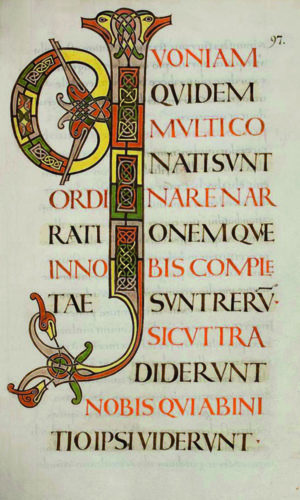 97.
QUONIAM
QVIDEM
MVLTI CO
NATI SVNT
ORDINARE NAR
RATIONEM QVE
IN NOBIS COMPLE
TAE SVNT RERV̅
SICVT TRA
DIDERVNT
NOBIS QVI AB INI
TIO IPSI VIDERVNT·